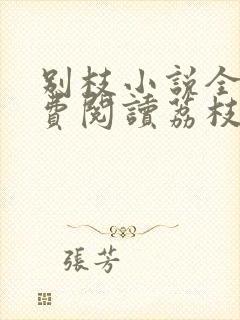 别枝小説全
費閱讀荔枝
張芳